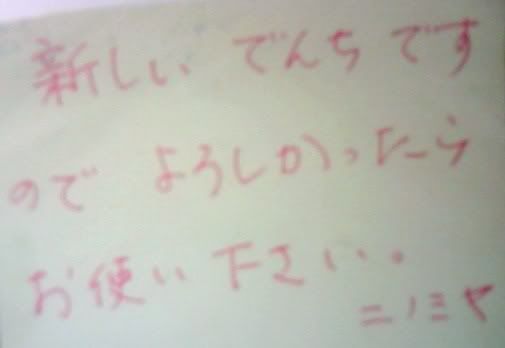 新しい でんちです
ので よろしかったら
お使い下さい。
ニノミヤ